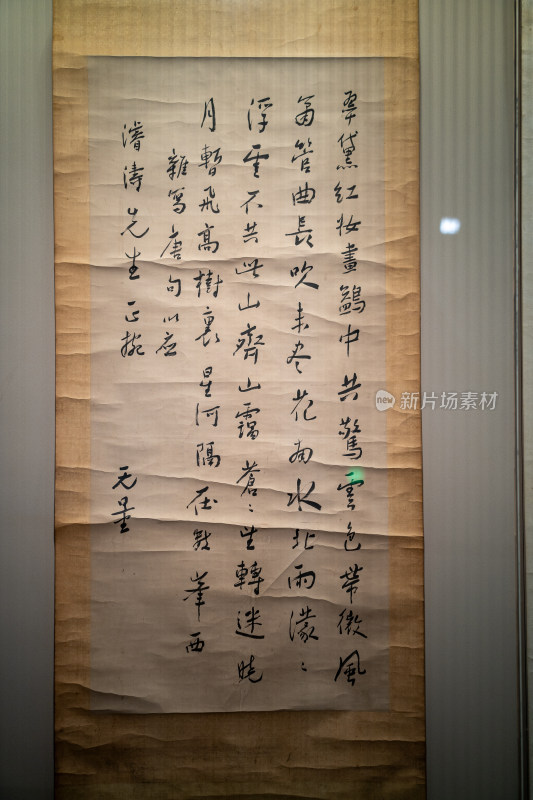 翠黛红妆画鹢中共惊云色带微风
箫管曲长吹未尽花南水北雨濛〻
浮云不共此山齐山霭苍〻望转迷晓
月暂飞高树里星河隔在数峰西
杂写唐句以应
濬涛先生正腕
无量
new 新片场素材